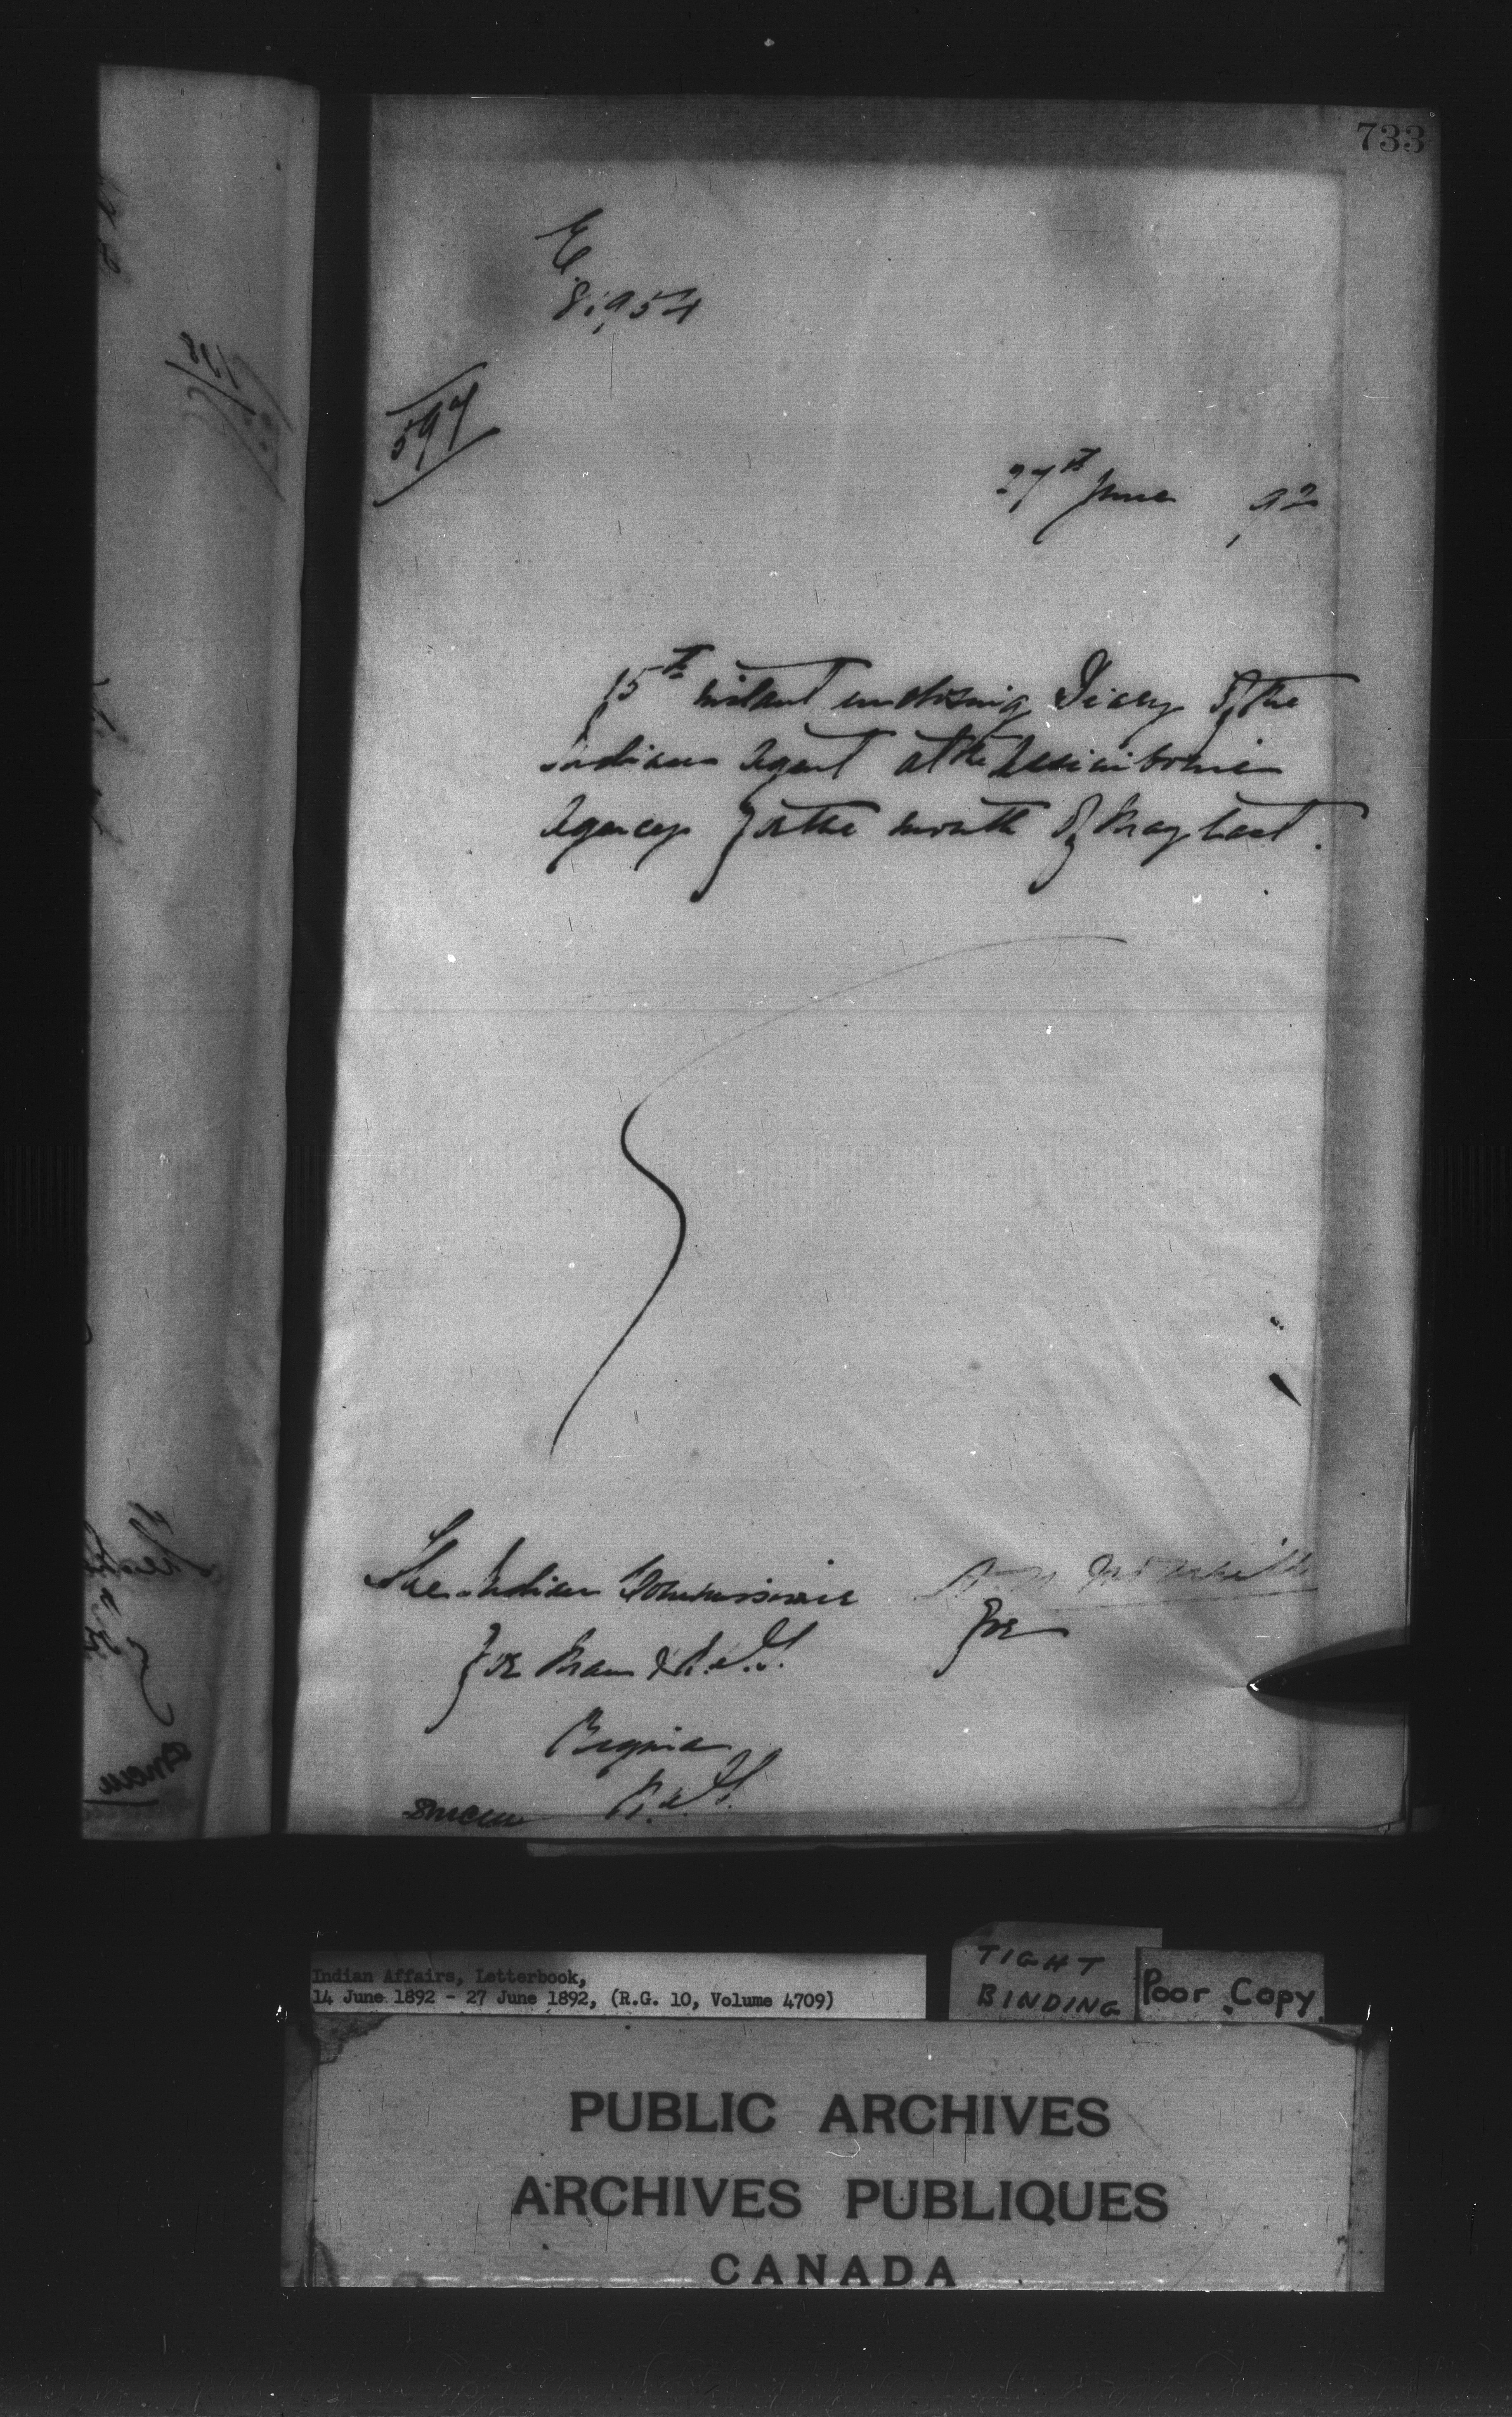 733
E
81954
597
27th June 92
15th instant enclosing Diary of the
Indian Agent at the Assiniboine
Agency for the month of May last.
The Indian Commissioner
for Man & N.W.T.
for
Regina
N.W.T.
Indian Affairs, Letterbook,
14 June 1892 - 27 June 1892, (R.G. 10, Volume 4709)
TIGHT
BINDING
Poor Copy
PUBLIC ARCHIVES
ARCHIVES PUBLIQUES
CANADA